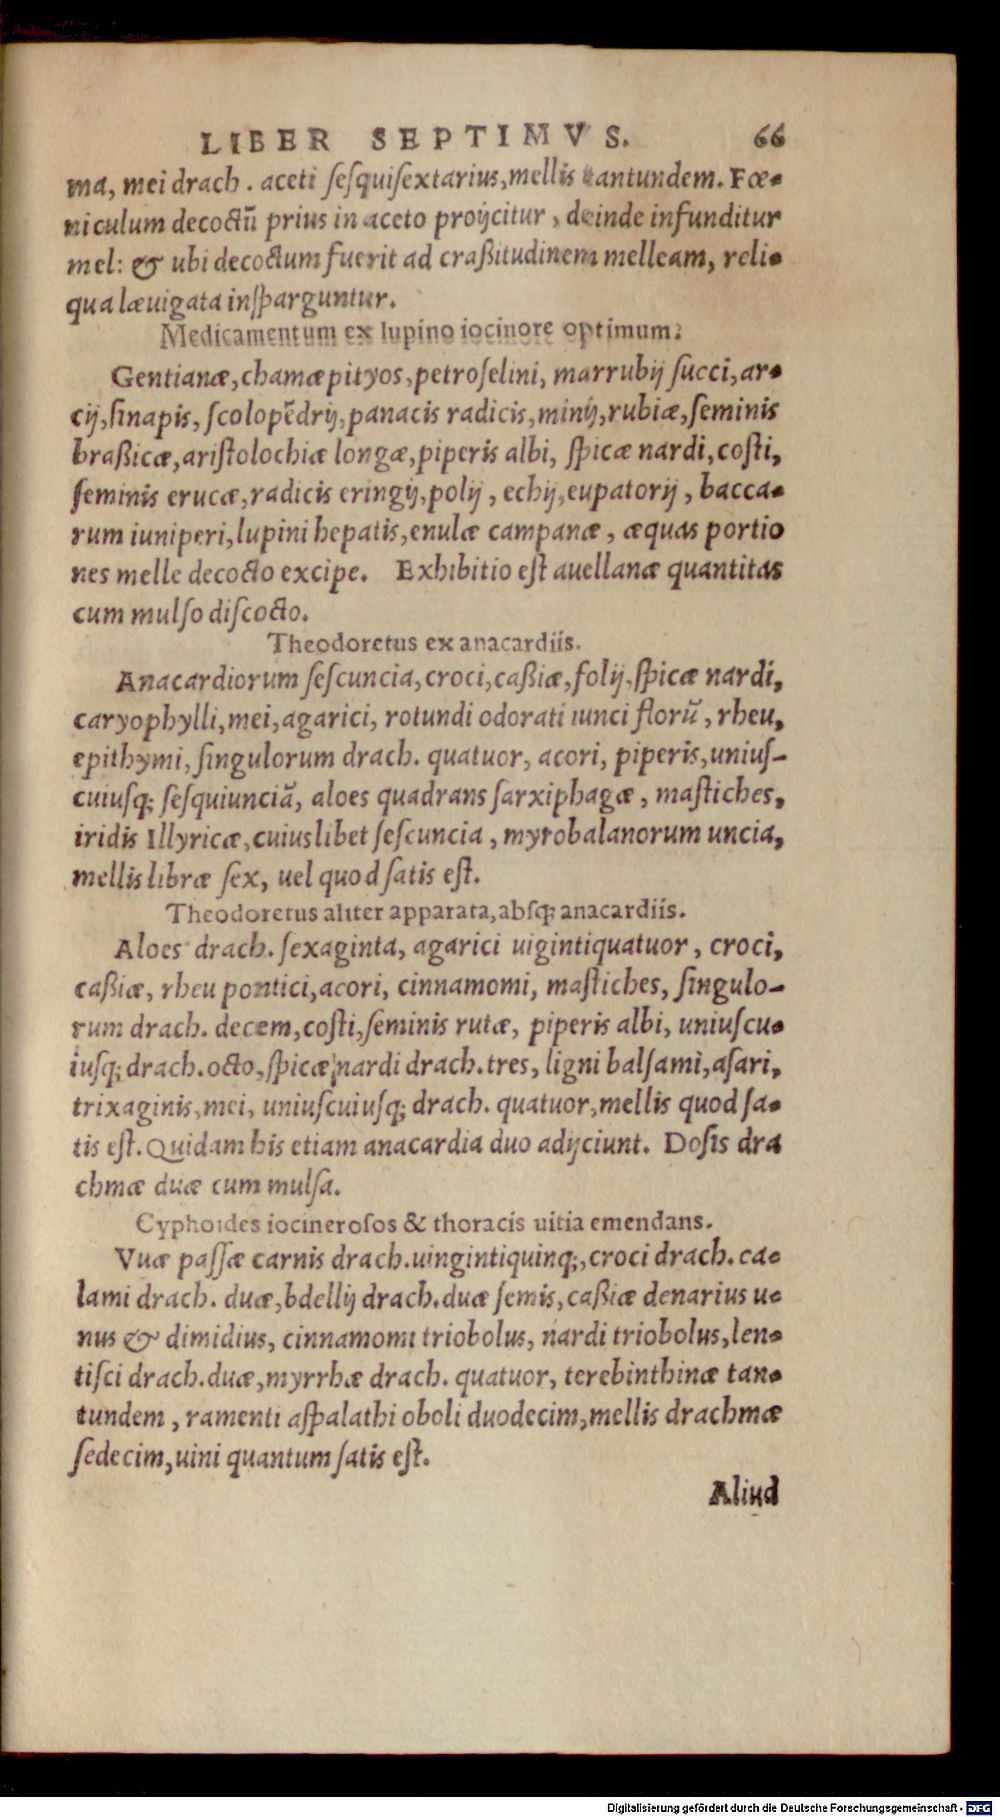 LIBER SEPTIMVS. 66
ma, mei drach. aceti ſeſquiſextarius, mellis tantundem. Fœ-
niculum decoctũ prius in aceto proijcitur, deinde infunditur
mel: & ubi decoctum fuerit ad craßitudinem melleam, reli-
qua læuigata inſparguntur.
Medicamentum ex lupino iocinore optimum.
Gentianæ, chamæpityos, petroſelini, marrubij ſucci, ar-
cij, ſinapis, ſcolopẽdrij, panacis radicis, minij, rubiæ, ſeminis
braßicæ, ariſtolochiæ longæ, piperis albi, ſpicæ nardi, coſti,
ſeminis erucæ, radicis eringij, polij, echij, eupatorij, bacca-
rum iuniperi, lupini hepatis, enulæ campanæ, æquas portio
nes melle decocto excipe. Exhibitio eſt auellanæ quantitas
cum mulſo diſcocto.
Theodoretus ex anacardiis.
Anacardiorum ſeſcuncia, croci, caßiæ, folij, ſpicæ nardi,
caryophylli, mei, agarici, rotundi odorati iunci florũ, rheu,
epithymi, ſingulorum drach. quatuor, acori, piperis, uniuſ-
cuiuſq; ſeſquiunciã, aloes quadrans ſarxiphagæ, maſtiches,
iridis Illyricæ, cuiuslibet ſeſcuncia, myrobalanorum uncia,
mellis libræ ſex, uel quod ſatis eſt.
Theodoretus aliter apparata, abſq; anacardiis.
Aloes drach. ſexaginta, agarici uigintiquatuor, croci,
caßiæ, rheu pontici, acori, cinnamomi, maſtiches, ſingulo-
rum drach. decem, coſti, ſeminis rutæ, piperis albi, uniuſcu-
iuſq; drach. octo, ſpicæ nardi drach. tres, ligni balſami, aſari,
trixaginis, mei, uniuſcuiuſq; drach. quatuor, mellis quod ſa-
tis eſt. Quidam his etiam anacardia duo adijciunt. Doſis dra
chmæ duæ cum mulſa.
Cyphoides iocineroſos & thoracis uitia emendans.
Vuæ paſſæ carnis drach. uingintiquinq;, croci drach. ca-
lami drach. duæ, bdellij drach. duæ ſemis, caßiæ denarius u-
nus & dimidius, cinnamomi triobolus, nardi triobolus, len-
tiſci drach. duæ, myrrhæ drach. quatuor, terebinthinæ tan-
tundem, ramenti aſpalathi oboli duodecim, mellis drachmæ
ſedecim, uini quantum ſatis eſt.
Aliud
Digitalisierung gefördert durch die Deutsche Forschungsgemeinschaft - DFG